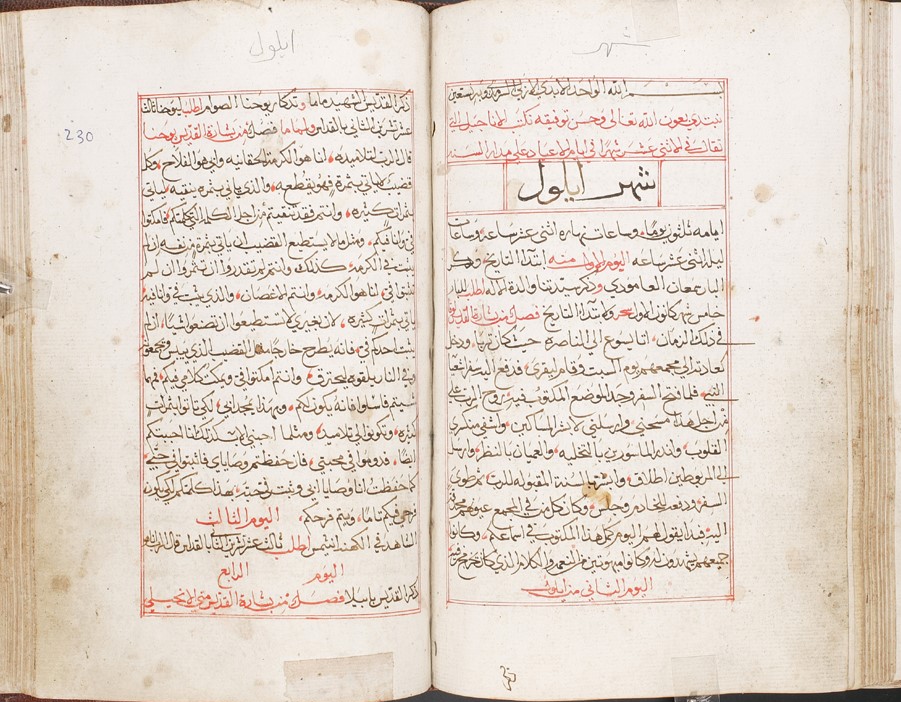 شهر
بسم الله الواحد الابدي الازلي السرمدي وبه نستعين
نبتدي بعون الله تعالى وحسن توفيقه نكتب الاناجيل التي
تقال في الاثني عشر شهرا في ايام الاعياد على مدار السنه
شهر ايلول
ايامه ثلثون يوما، وساعات نهاره اثنى عشر ساعه وساعات
ليله اثنى عشر ساعه اليوم الاول منه ابتدا التاريخ وذكر
البار سمعان العامودي وذكر سيدتنا والدة الاله اطلب
خامس شهر كانون الاول ولابتداء التاريخ فصل من بشارة القديس لوقا
في ذلك الزمان، اتا يسوع الى الناصره حيث كان تربا، ودخل
كعادته الى مجمعهم يوم السبت وقام ليقرى، فدفع اليه سفر اشعيا
النبي، فلما فتح السفر وجد الموضع المكتوب فيه، روح الرب علي
من اجل هذا مسحني وارسلني لابشر المساكين، واشفي منكسري
القلوب، وانذر الماسورين بالتخليه، والعميان بالنظر، وارسل
المربوطين اطلاق، سنة المقبوله للرب، ثم طوى
السفر ودفعه للخادم وجلس، وكان كل من في المجمع عيونهم محدقه
اليه، فبدا يقول لهم اليوم كمل هذا المكتوب في اسماعكم، وكانوا
جميعهم يشهدون له وكانوا مبهوتين من النعمه والكلام الذي كان يخرج من فيه
اليوم الثاني من ايلول
ايلول
230
ذكر القديس الشهيد ماما وتذكار يوحنا الصوام اطلب ليوحنا ثالث
عشر تشرين الثاني بالقداس ولماما فصل من بشارة القديس يوحنا
قال الرب لتلاميذه، انا هو الكرمة الحقانيه وابي هو الفلاح، وكل
قضيب لا ياتي بثمرة فهو يقطعه، والذي ياتي بثمره ينقيه لياتي
بثمرات كثيره، وانتم فقد تنقيتم من اجل الكلام الذي كلمتكم فامكثوا
في وانا فيكم، ومثل ما لا يستطيع القضيب ان ياتي بثمرة من نفسه ان لم
يثبت في الكرمه، كذلك وانتم لم تقدروا ان تثمروا ان لم
تثبتوا في، انا هو الكرمه وانتم الاغصان، والذي يثبت في وانا فيه
ياتي بثمرات كثيره، لان بغيري لا تستطيعوا ان تصنعوا شيا، ان لم
يثبت احدكم في، فانه يطرح خارجا مثل القضيب الذي ييبس ويجمعوه
وفي النار يلقوه ليحترق، وانتم امكثوا في ويمكث كلامي فيكم، فمهما
شيتم فاسلوا فانه يكون لكم، وبهذا يتمجد ابي، لكي تاتوا بثمرات
كثيره، وتكونوا لي تلاميذ، ومثلما احبني الاب كذلك انا احببتكم
ايضا، فدوموا في محبتي، فان حفظتم وصاياي فاثبتوا في حبي
كما حفظت انا وصايا ابي وثبت في محبته، هذا كلمتكم لكي يكون
فرحي فيكم ثابتا، ويتم فرحكم،
اليوم الثالث
الشاهد في الكهنه انتيمس اطلب ثالث عشر تشرين الثاني بالقداس قال الرب انا هو
اليوم الرابع
ذكر القديس بابيلا فصل من بشارة القديس متى الانجيلي